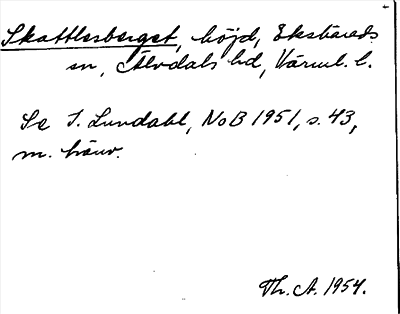 Skattlesberget, höjd, Ekshärads
sn, Älvdals hd, Värml. l.
Se I. Lundahl, NoB 1951, s. 43,
m. hänv.
Th. A. 1954.